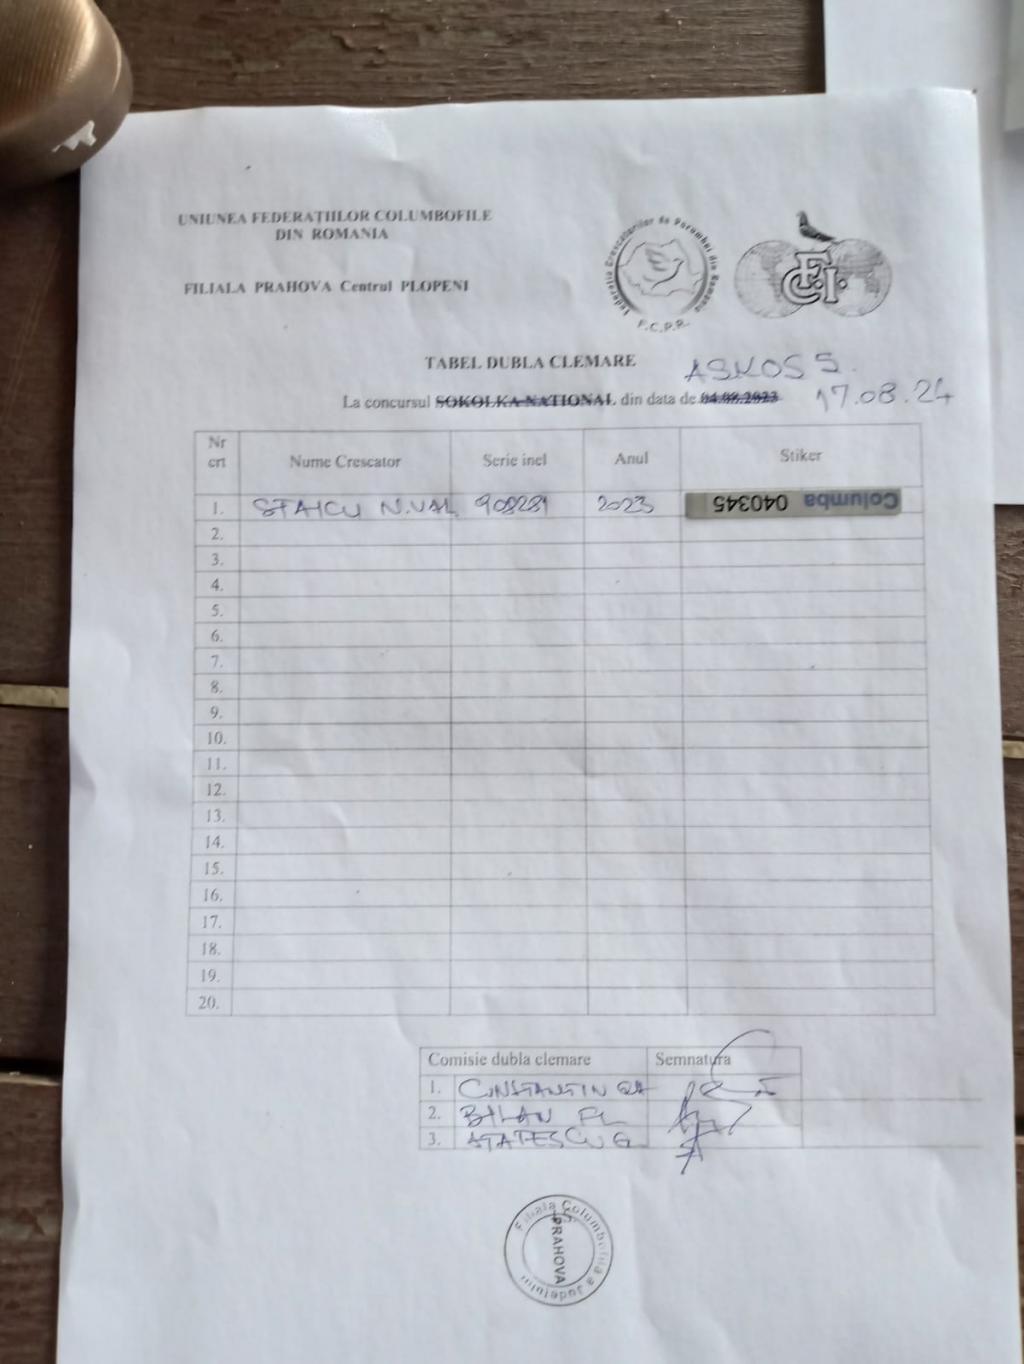 UNIUNEA FEDERAȚIILOR COLUMBOFILE
DIN ROMANIA
FILIALA PRAHOVA Centrul PLOPENI
Federatia Crescatorilor de Porumbei din Romania
F.C.P.R.
F.C.I.
TABEL DUBLA CLEMARE
ASKOS S.
La concursul SOKOLKA NATIONAL din data de 04.08.2023 17.08.24
Nr crt Nume Crescator Serie inel Anul Stiker
1. STAICU N.VAL 908281 2023 Columba 040345
2.
3.
4.
5.
6.
7.
8.
9.
10.
11.
12.
13.
14.
15.
16.
17.
18.
19.
20.
Comisie dubla clemare Semnatura
1. CONSTANTIN
2. BILAN FL
3.
Filiala Columbofila a Judetului
PRAHOVA